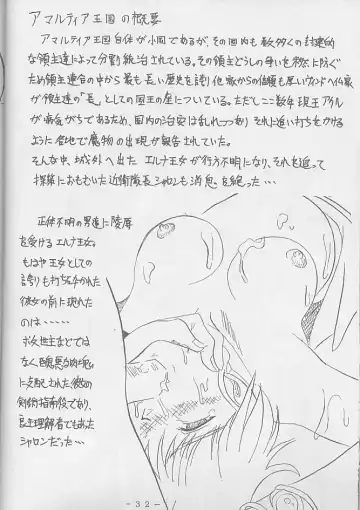 アマルティア王国の概要
アマルティア王国自体が小国であるが、その国内も数多くの封建的
な領主達によって分割統治されている。その領主どうしの争いを未然に防ぐ
ため領主連合の中から最も長い歴史を誇り他家からの信頼も厚いヴィンドヘイム家
が領主達の"長"としての国王の座についている。ただしここ数年現王アルゲル
が病気がちであるため、国内の治安は乱れつつあり それに追い打ちをかける
ように各地で魔物の出現が報告されていた。
そんな中、城外へ出た エルナ王女が行方不明になり、それを追って
探索におもむいた近衛隊長シャロンも消息を絶った…
正体不明の男達に陵辱
を受けるエルナ王女。
もはや王女としての
誇りも打ちくだかれた
彼女の前に現れた
のは……
救世主などでは
なく、醜悪な肉塊
に支配された彼女の
剣術指南役であり、
良き理解者でもあった
シャロンだった…
-32-